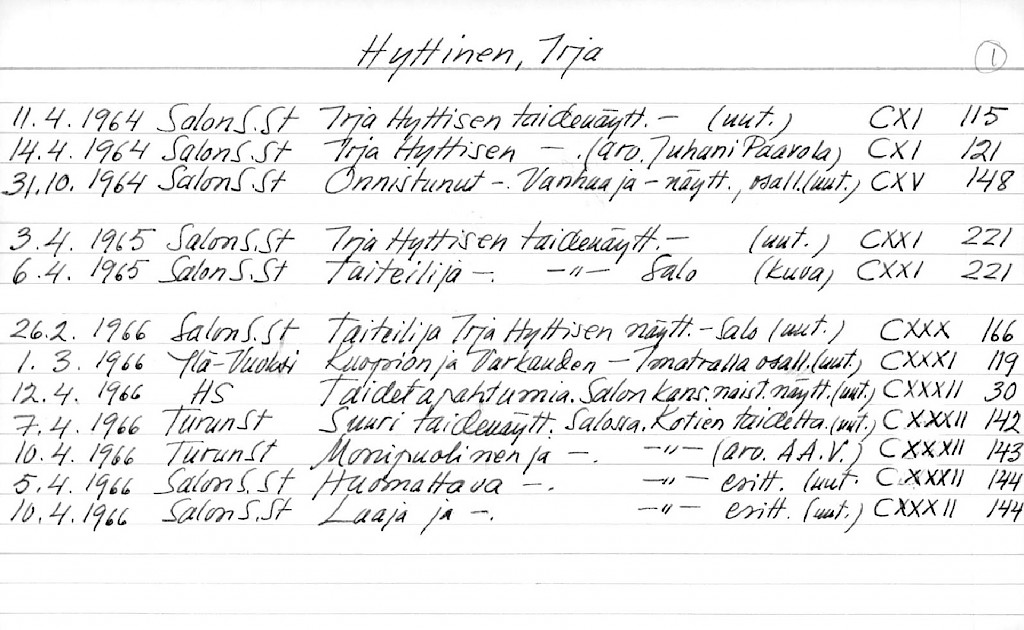 Hyttinen, Irja 1
11.4.1964 SalonS.St Irja Hyttisen taidenäytt. – (uut.) CXI 115
14.4.1964 SalonS.St Irja Hyttisen – . (arv. Juhani Paavola) CXI 121
31.10.1964 SalonS.St Onnistunut –. Vanhaa ja – näytt., osall.(uut.) CXV 148
3.4.1965 SalonS.St Irja Hyttisen taidenäytt. – (uut.) CXXI 221
6.4.1965 SalonS.St Taiteilija –. –"– Salo (kuva) CXXI 221
26.2.1966 SalonS.St Taiteilija Irja Hyttisen näytt. – Salo (uut.) CXXX 166
1.3.1966 Ylä-Vuoksi Kuopion ja Varkauden – Imatralla osall.(uut.) CXXXI 119
12.4.1966 HS Taidetapahtumia. Salon kans.naist.näytt.(uut.) CXXXII 30
7.4.1966 TurunSt Suuri taidenäytt. Salossa. Kotien taidetta.(uut.) CXXXII 142
10.4.1966 TurunSt Monipuolinen ja –. –"– (arv. A.A.V.) CXXXII 143
5.4.1966 SalonS.St Huomattava –. –"– esitt. (uut. CXXXII 144
10.4.1966 SalonS.St Laaja ja –. –"– esitt. (uut.) CXXXII 144